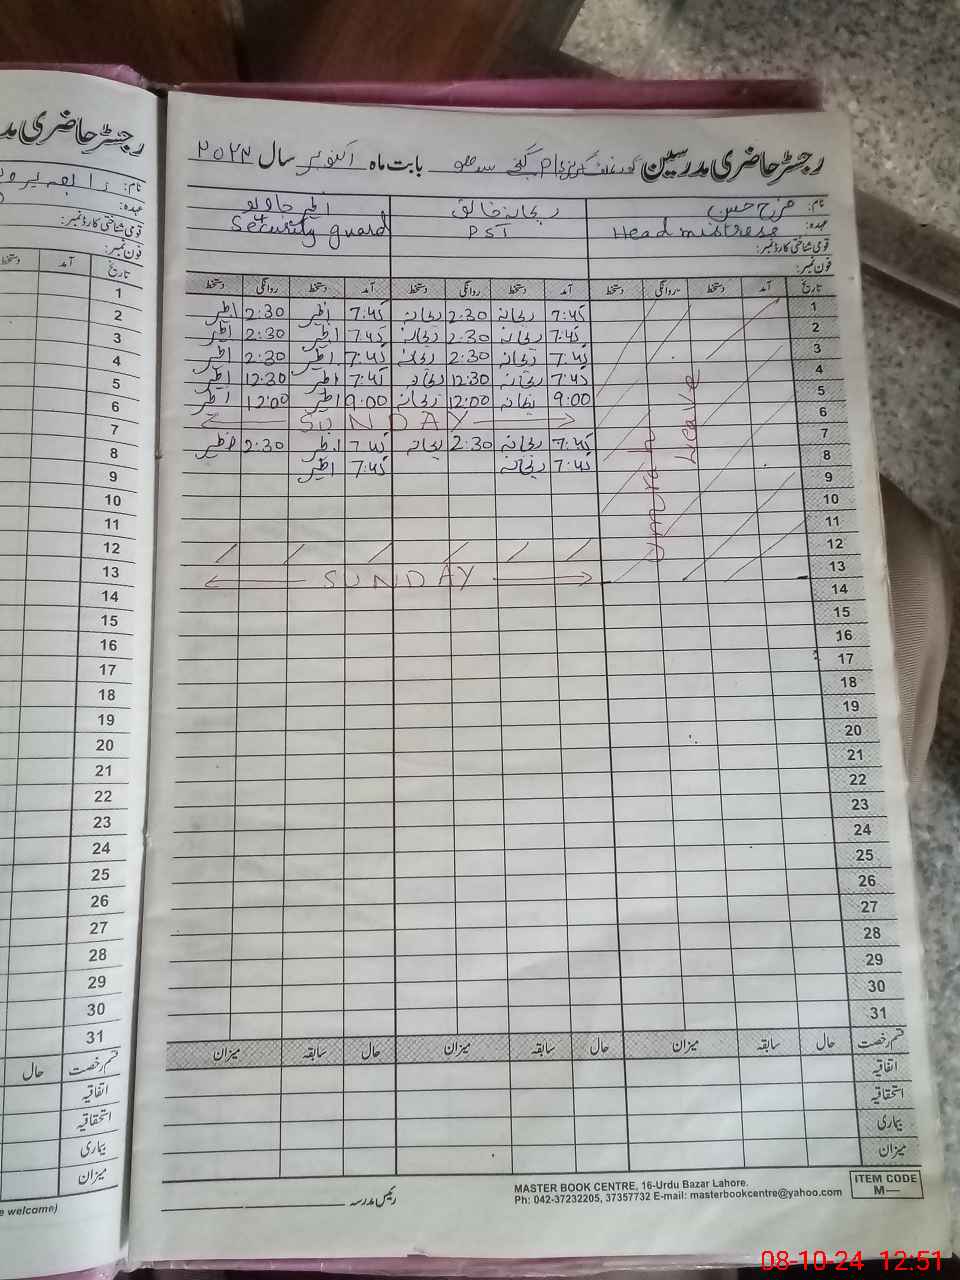 رجسٹر حاضری مدرسین بابت ماہ اکتوبر سال ۲۰۲۴
نام: فرح حسن ریحانہ خالق
عہدہ: Head mistrese PST Security guard
قومی شناختی کارڈ نمبر:
فون نمبر:
تاریخ آمد دستخط روانگی دستخط آمد دستخط روانگی دستخط آمد دستخط روانگی دستخط
1 7:45 ریحانہ 2:30 ریحانہ 7:45 اظہر 2:30 اظہر
2 7:45 ریحانہ 2:30 ریحانہ 7:45 اظہر 2:30 اظہر
3 7:45 ریحانہ 2:30 ریحانہ 7:45 اظہر 2:30 اظہر
4 7:45 ریحانہ 12:30 ریحانہ 7:45 اظہر 12:30 اظہر
5 9:00 ریحانہ 12:00 ریحانہ 9:00 اظہر 12:00 اظہر
6 SUNDAY
7 7:45 ریحانہ 2:30 ریحانہ 7:45 اظہر 2:30 اظہر
8 7:45 ریحانہ 7:45 اظہر
Umrah Leave
9
10
11
12
13 SUNDAY
14
15
16
17
18
19
20
21
22
23
24
25
26
27
28
29
30
31
قسم رخصت حال سابقہ میزان حال سابقہ میزان حال سابقہ میزان
اتفاقیہ
استحقاقیہ
بیماری
میزان
رئیس مدرسہ
MASTER BOOK CENTRE, 16-Urdu Bazar Lahore.
Ph: 042-37232205, 37357732 E-mail: masterbookcentre@yahoo.com
ITEM CODE
M—
رجسٹر حاضری
نام:
عہدہ:
قومی شناختی کارڈ نمبر:
فون نمبر:
تاریخ آمد دستخط
1
2
3
4
5
6
7
8
9
10
11
12
13
14
15
16
17
18
19
20
21
22
23
24
25
26
27
28
29
30
31
قسم رخصت حال
اتفاقیہ
استحقاقیہ
بیماری
میزان
welcome)
08-10-24 12:51